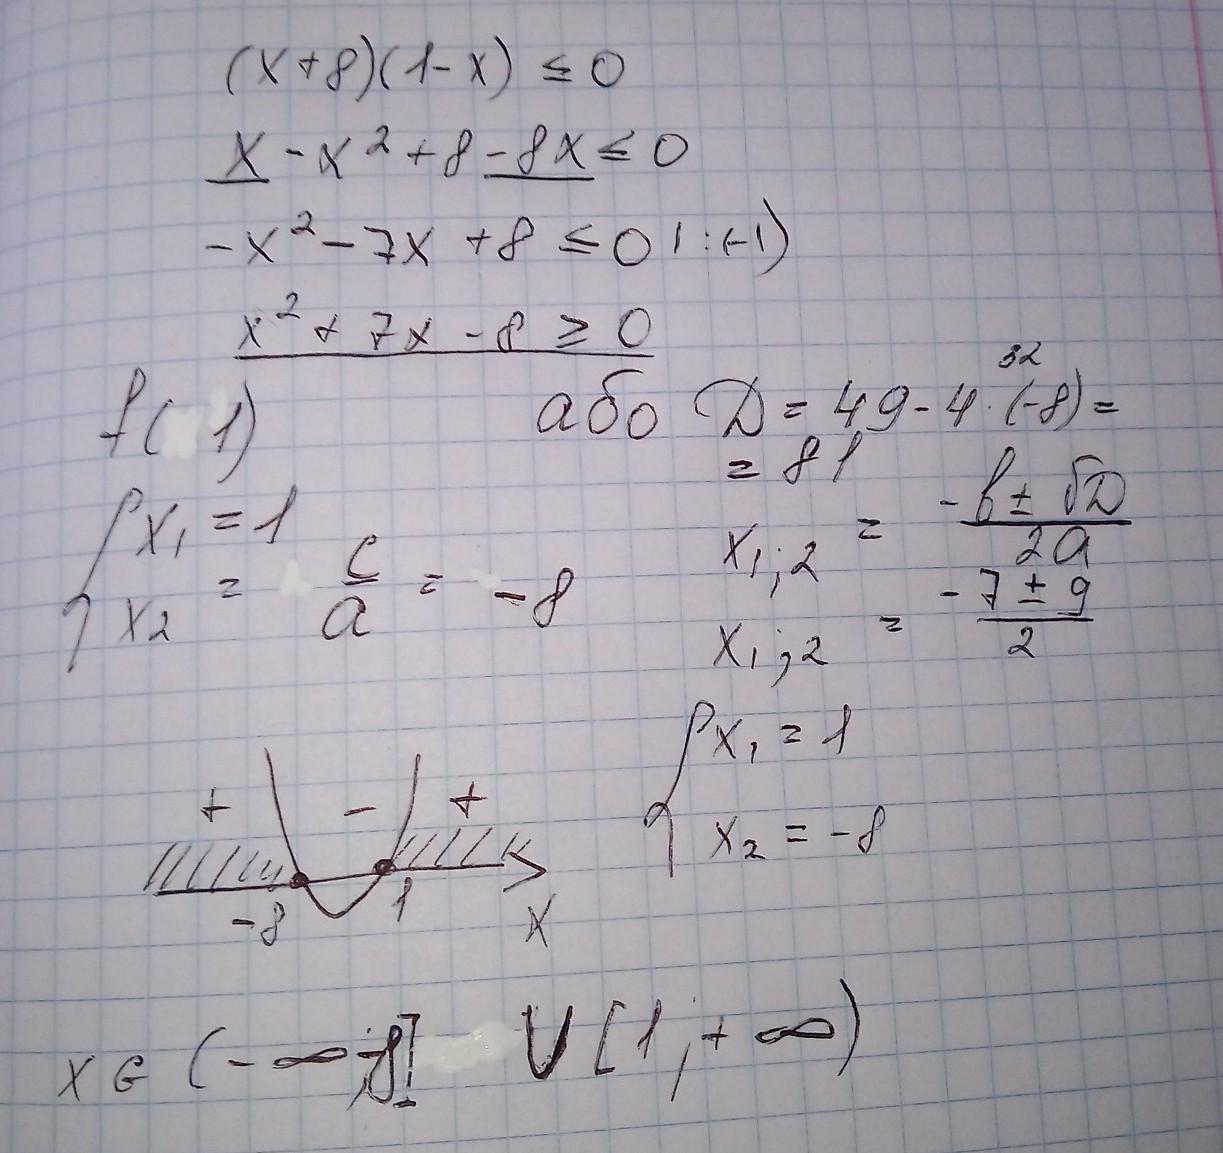 (x+8)(1-x) ≤ 0
x - x² + 8 - 8x ≤ 0
-x² - 7x + 8 ≤ 0 | :(-1)
x² + 7x - 8 ≥ 0
f(1)
{ x₁ = 1
x₂ = c/a = -8
або D = 49 - 4·(-8) =
32
= 81
x₁;₂ = (-b ± √D)/2a
x₁;₂ = (-7 ± 9)/2
{ x₁ = 1
x₂ = -8
+ - +
-8 1 x
x ∈ (-∞;-8] ∪ [1;+∞)